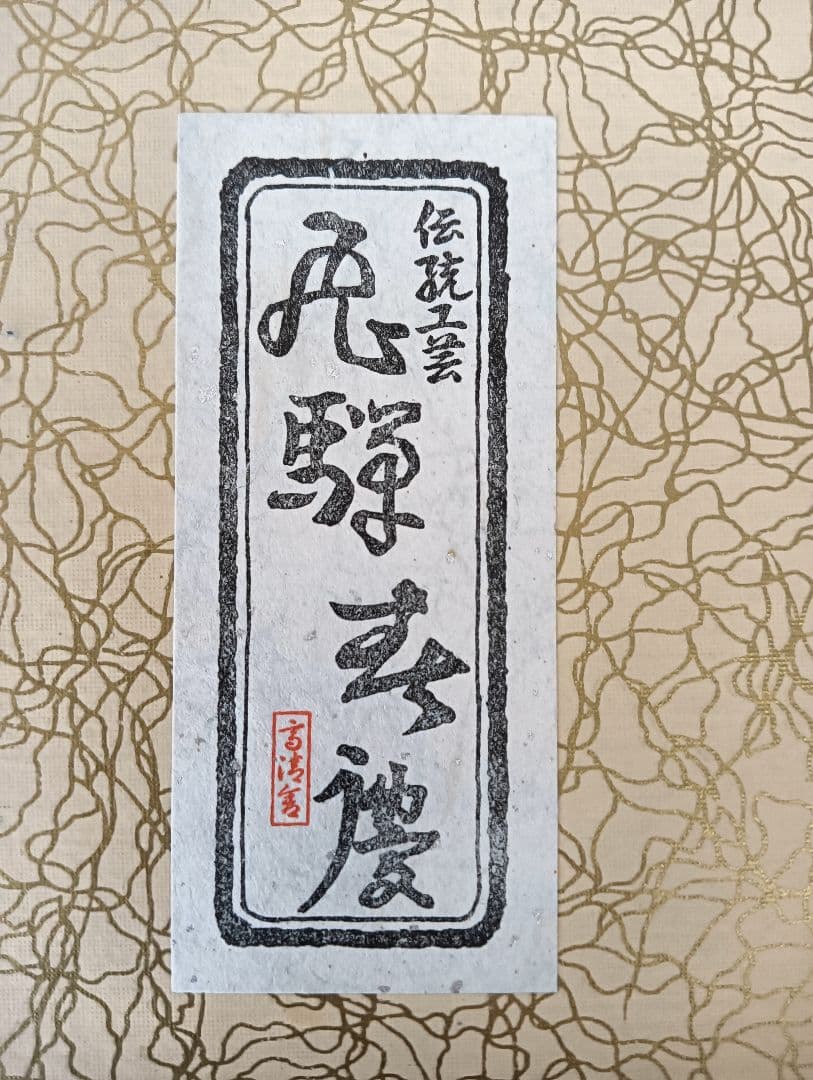 伝統工芸
飛騨春慶
高清舎